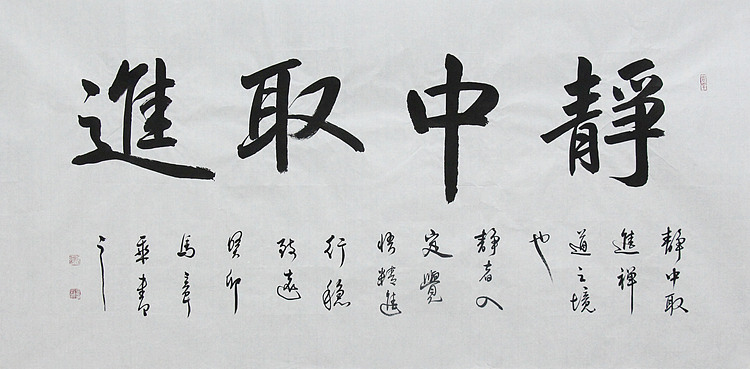 靜中取進
靜中取
進禪
道之境
也
靜者入
定覺
悟精進
行穩
致遠
癸卯
馬章
乘書
之